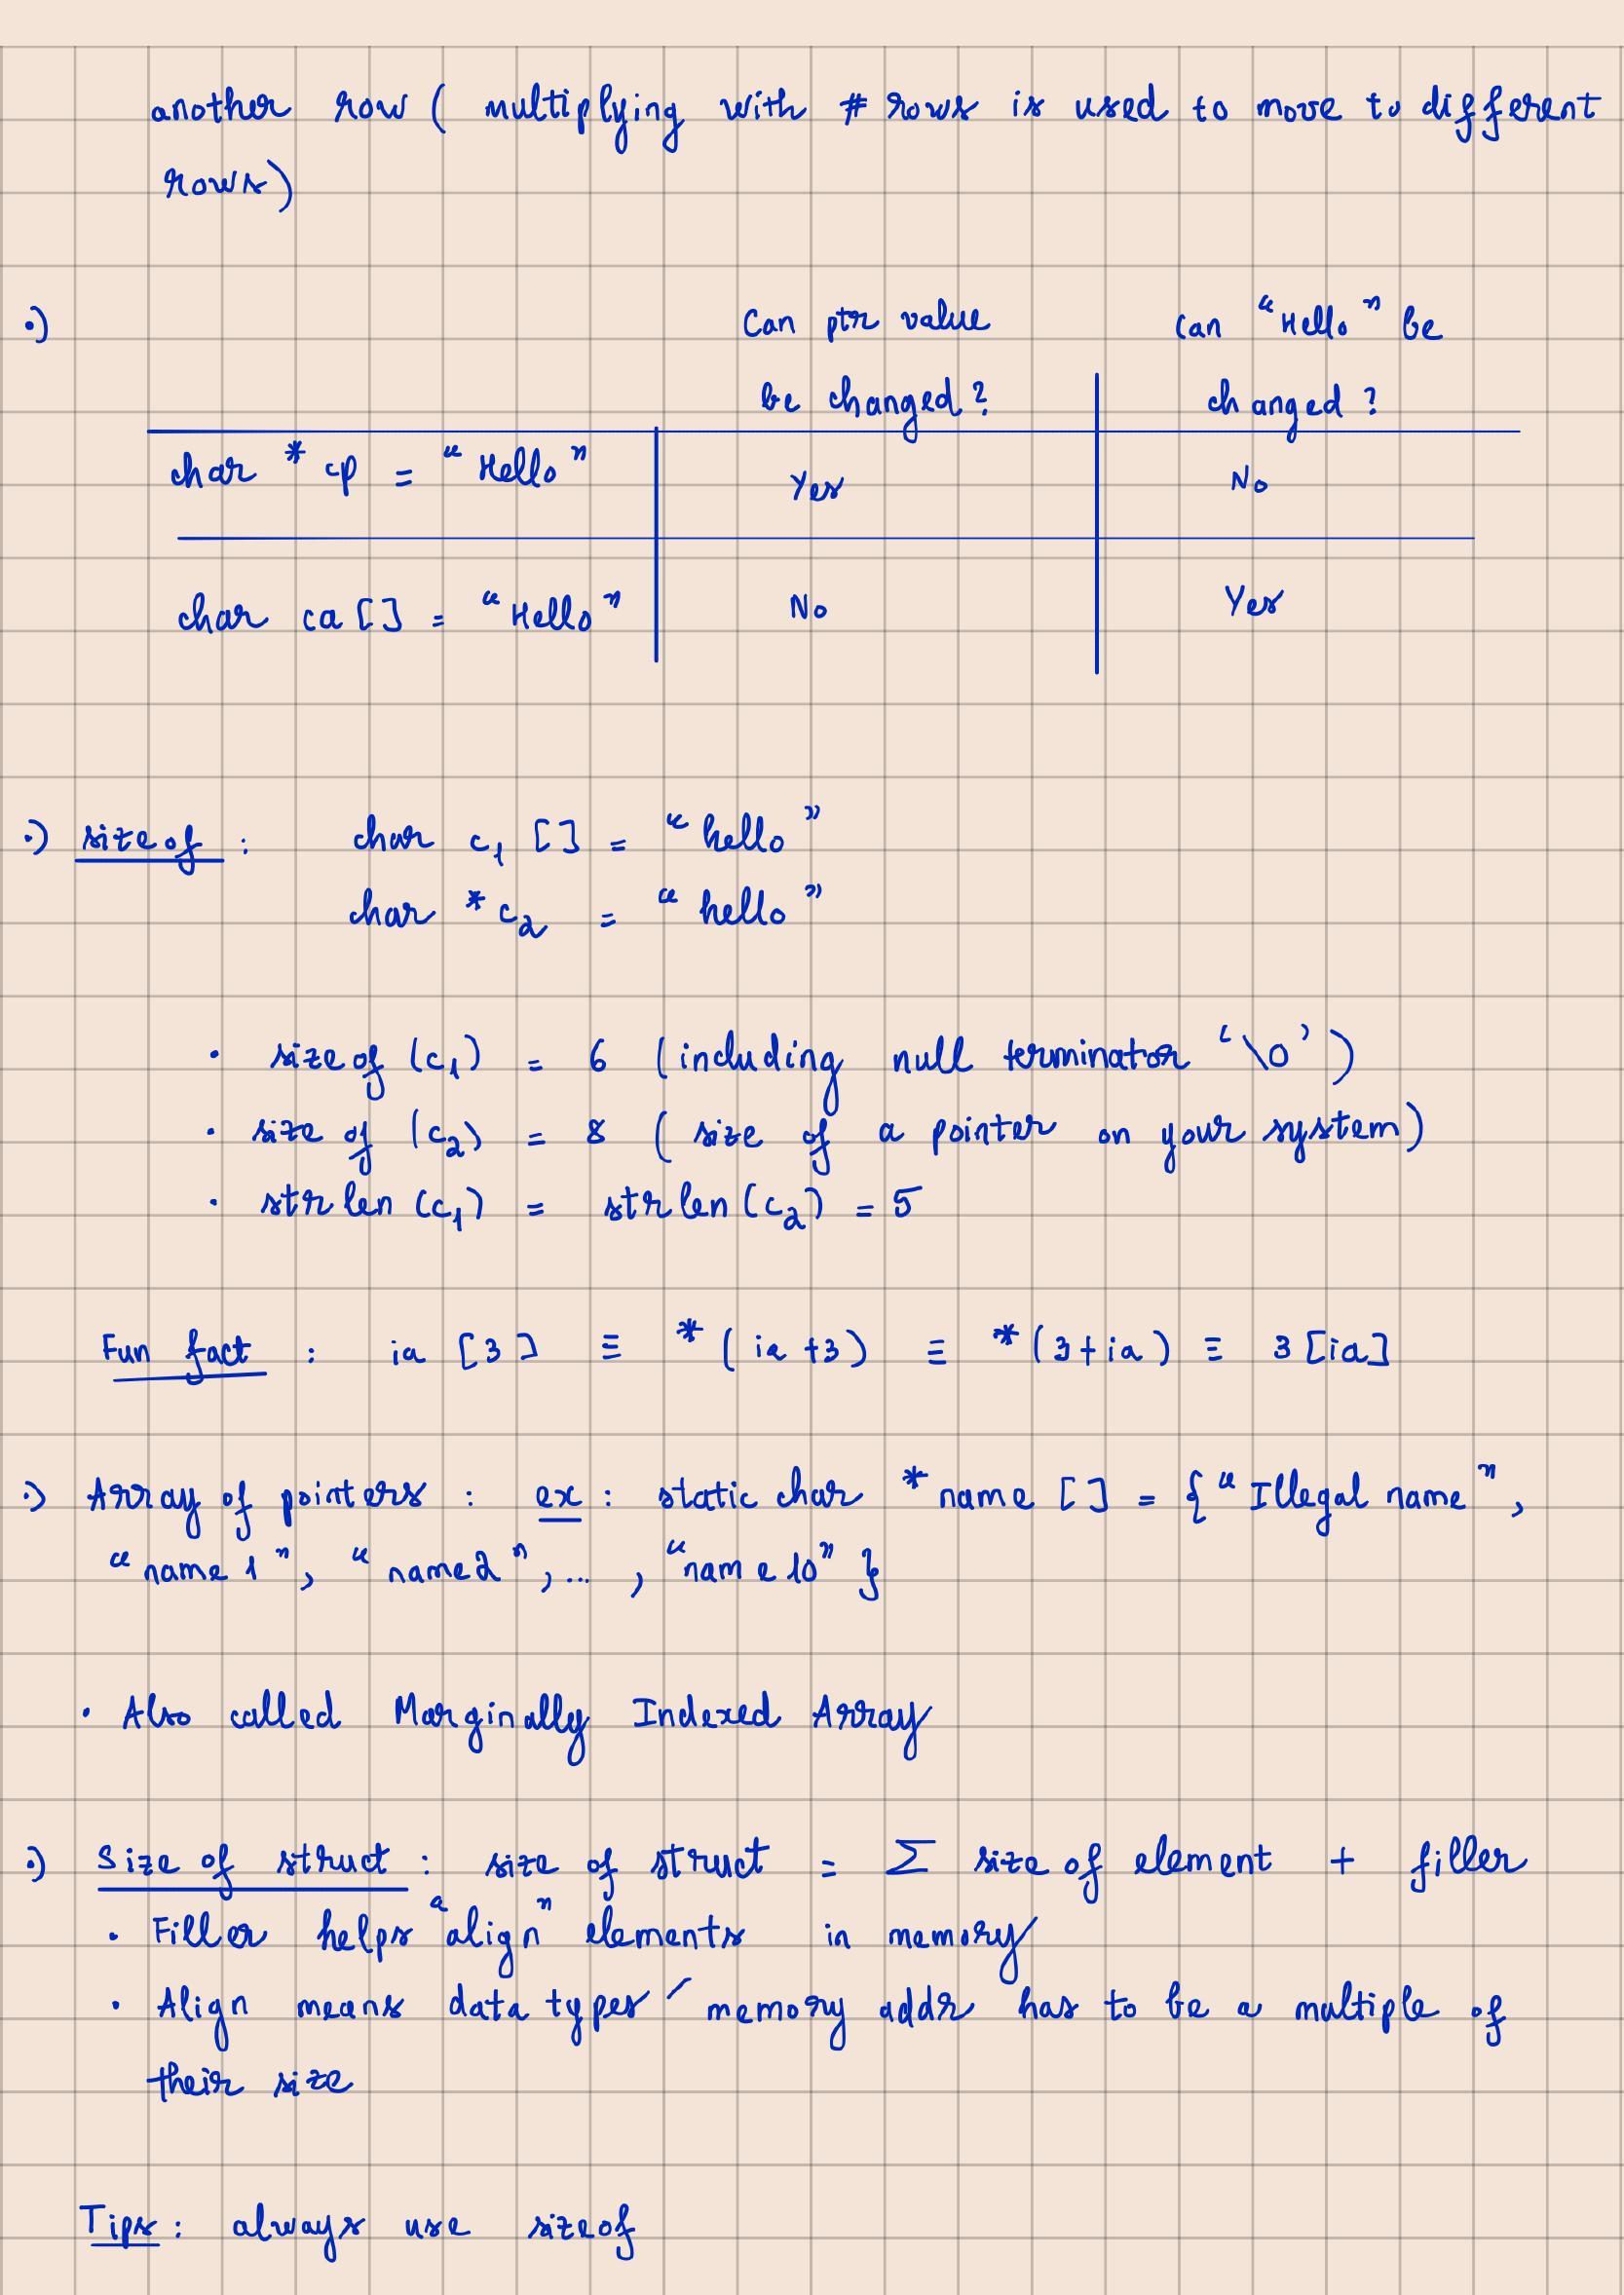 another row ( multiplying with # rows is used to move to different
rows)
•) Can ptr value can "Hello" be
be changed? changed?
char * cp = "Hello" Yes No
char ca[] = "Hello" No Yes
•) sizeof : char c₁ [] = "hello"
char *c₂ = "hello"
• sizeof (c₁) = 6 (including null terminator '\0')
• size of (c₂) = 8 ( size of a pointer on your system)
• strlen (c₁) = strlen(c₂) = 5
Fun fact : ia [3] ≡ *( ia +3) ≡ *(3+ia) ≡ 3[ia]
•) Array of pointers : ex : static char *name [] = {"Illegal name",
"name1", "name2", ... , "name10"}
• Also called Marginally Indexed Array
•) Size of struct : size of struct = Σ size of element + filler
• Filler helps "align" elements in memory
• Align means data types' memory addr has to be a multiple of
their size
Tips : always use sizeof